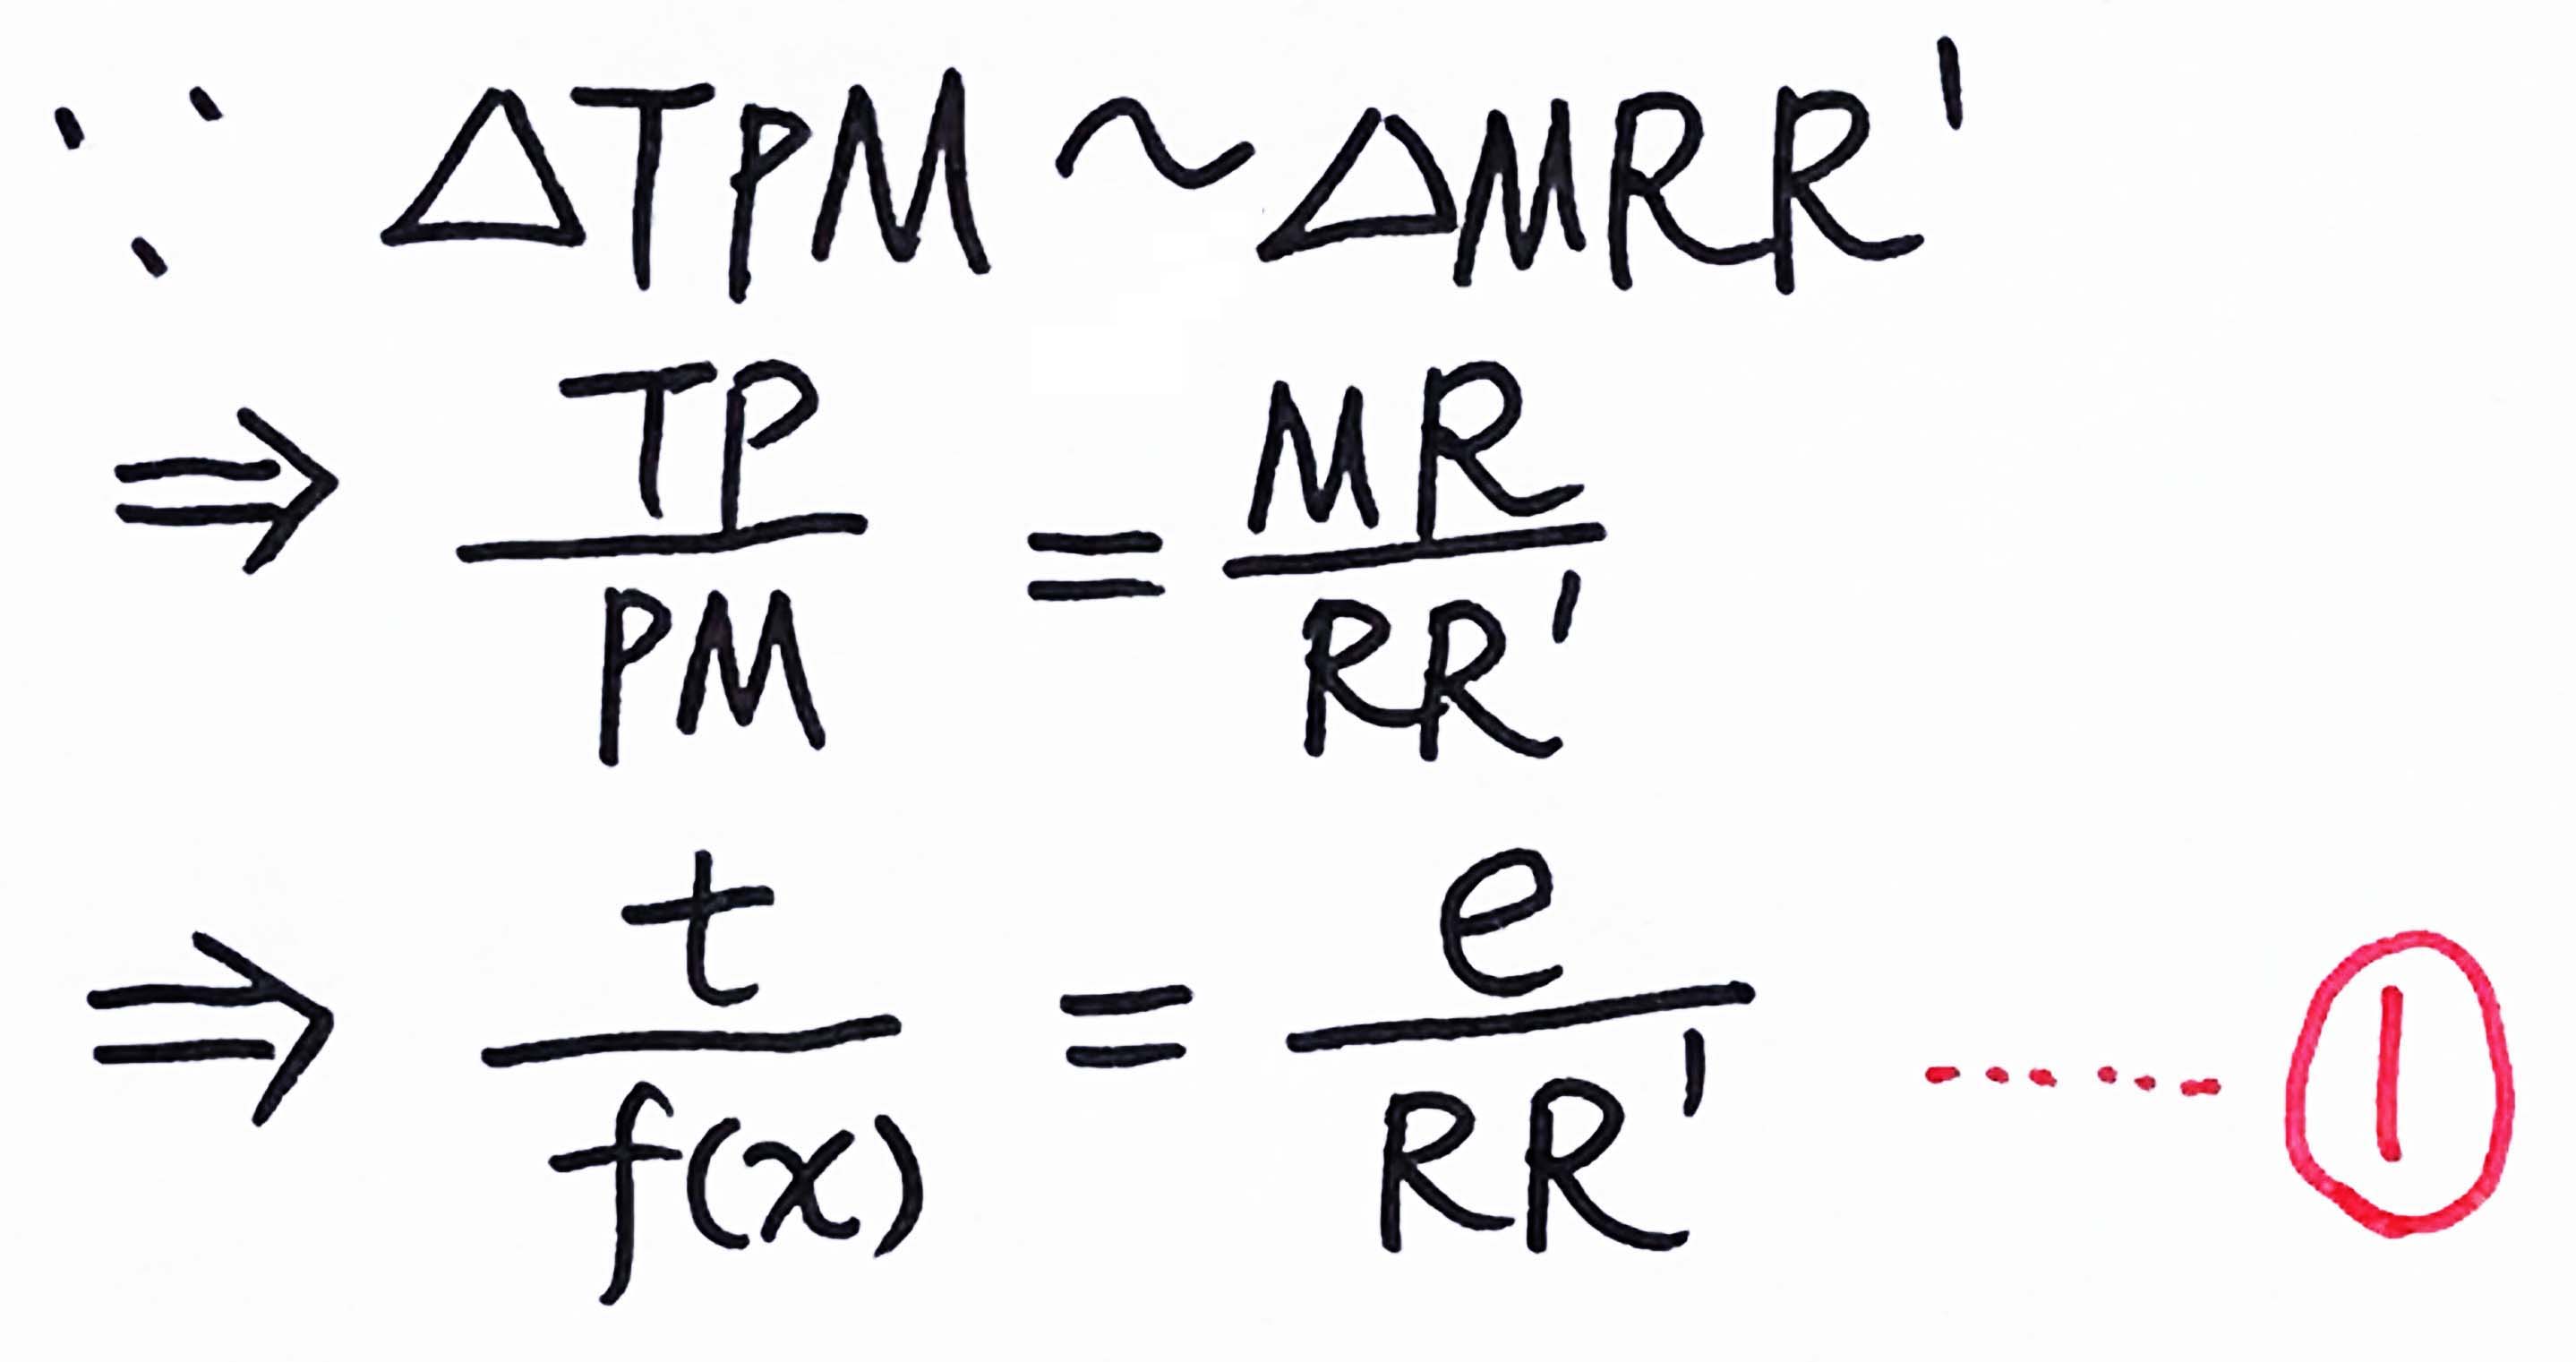 ∵ △TPM ~ △MRR'
⇒ TP/PM = MR/RR'
⇒ t/f(x) = e/RR' ...... ①